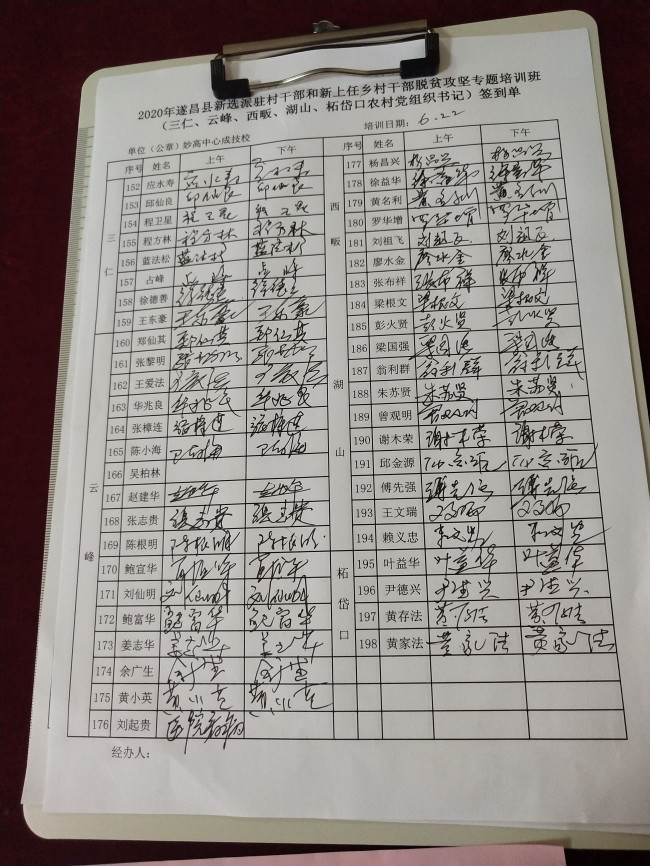 2020年遂昌县新选派驻村干部和新上任乡村干部脱贫攻坚专题培训班
（三仁、云峰、西畈、湖山、柘岱口农村党组织书记）签到单
单位（公章）妙高中心成技校 培训日期：6.22
序号 姓名 上午 下午
三仁
152 应水寿
153 邱仙良 邱仙良 邱仙良
154 程卫星 程卫星 程卫星
155 程方林 程方林 程方林
156 蓝法松 蓝法松 蓝法松
157 占峰 占峰 占峰
158 徐德善
159 王东豪 王东豪 王东豪
云峰
160 郑仙其 郑仙其 郑仙其
161 张黎明
162 王爱法
163 华兆良 华兆良 华兆良
164 张樟连 张樟连 张樟连
165 陈小海
166 吴柏林
167 赵建华
168 张志贵 张志贵 张志贵
169 陈根明 陈根明 陈根明
170 鲍宣华
171 刘仙明 刘仙明 刘仙明
172 鲍富华 鲍富华 鲍富华
173 姜志华
174 余广生
175 黄小英
176 刘起贵 医院看病
西畈
177 杨昌兴 杨昌兴 杨昌兴
178 徐益华 徐益华 徐益华
179 黄名利
180 罗华增 罗华增 罗华增
181 刘祖飞 刘祖飞 刘祖飞
182 廖水金 廖水金 廖水金
183 张布祥 张布祥 张布祥
湖山
184 梁根文 梁根文 梁根文
185 彭火贤 彭火贤 彭火贤
186 梁国强 梁国强 梁国强
187 翁利群 翁利群 翁利群
188 朱苏贤 朱苏贤 朱苏贤
189 曾观明
190 谢木荣 谢木荣 谢木荣
191 邱金源
192 傅先强
193 王文瑞
194 赖义忠
柘岱口
195 叶益华 叶益华 叶益华
196 尹德兴 尹德兴 尹德兴
197 黄存法
198 黄家法 黄家法 黄家法
经办人：